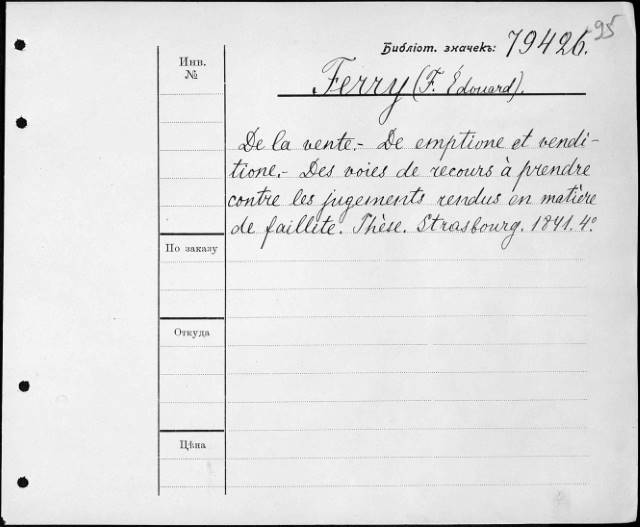 95
Библіот. значекъ: 79426.
Инв.
№
Ferry (F. Édouard).
De la vente.- De emptione et vendi-
tione.- Des voies de recours à prendre
contre les jugements rendus en matière
de faillite. Thèse. Strasbourg. 1841. 4º
По заказу
Откуда
Цѣна